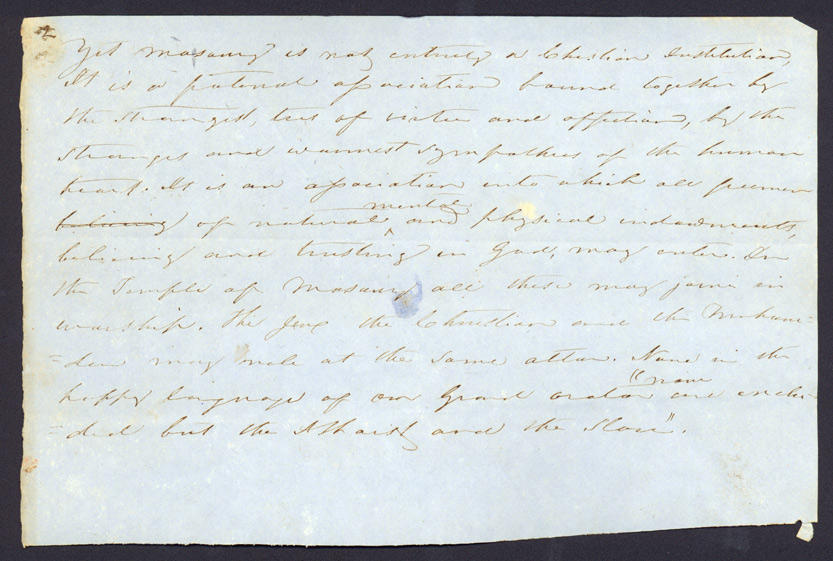 2
Yet Masonry is not entirely a Christian Institution,
It is a fraternal association bound together by
the strongest, ties of virtue and affection, by the
stronges and warmest sympathies of the human
heart. It is an association into which all freemen
believing of natural mental and physical indowments,
believing and trusting in God, may enter. In
the Temple of Masonry all these may join in
worship. The Jew, the Christian and the Moham=
=dan may neele at the same altar. None in the
happy language of our Grand orator "none are exclu-
=ded but the Athaist and the slave".